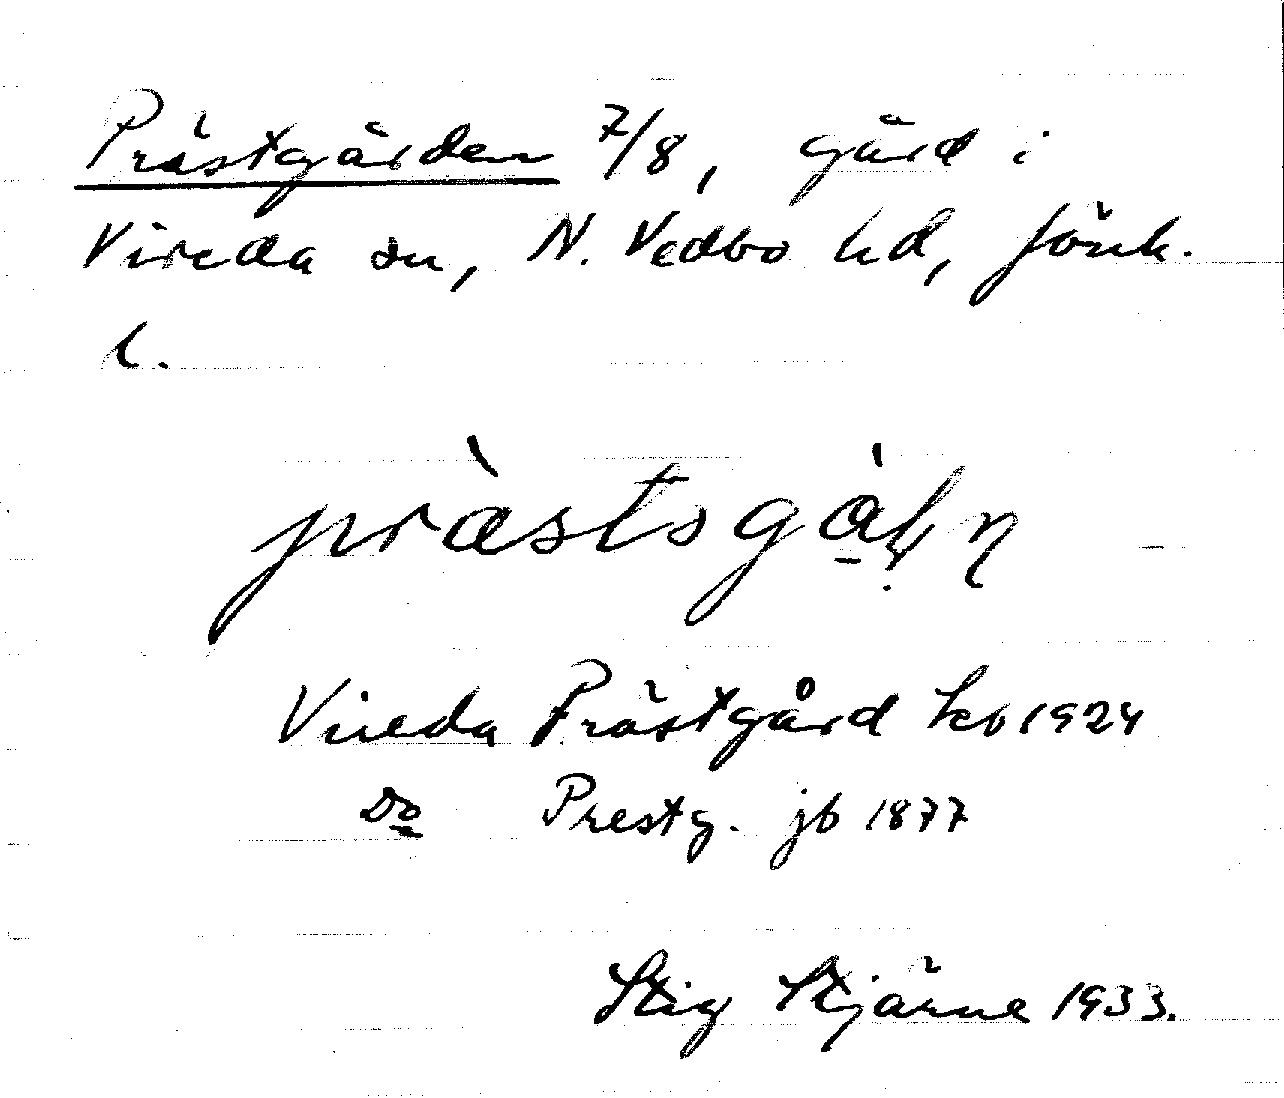 Prästgården 7/8, gård i
Vireda sn, N. Vedbo hd, Jönk.
l.
Vireda Prästgård kb 1924
Do Prestg. jb 1877
Stig Stjärne 1933.